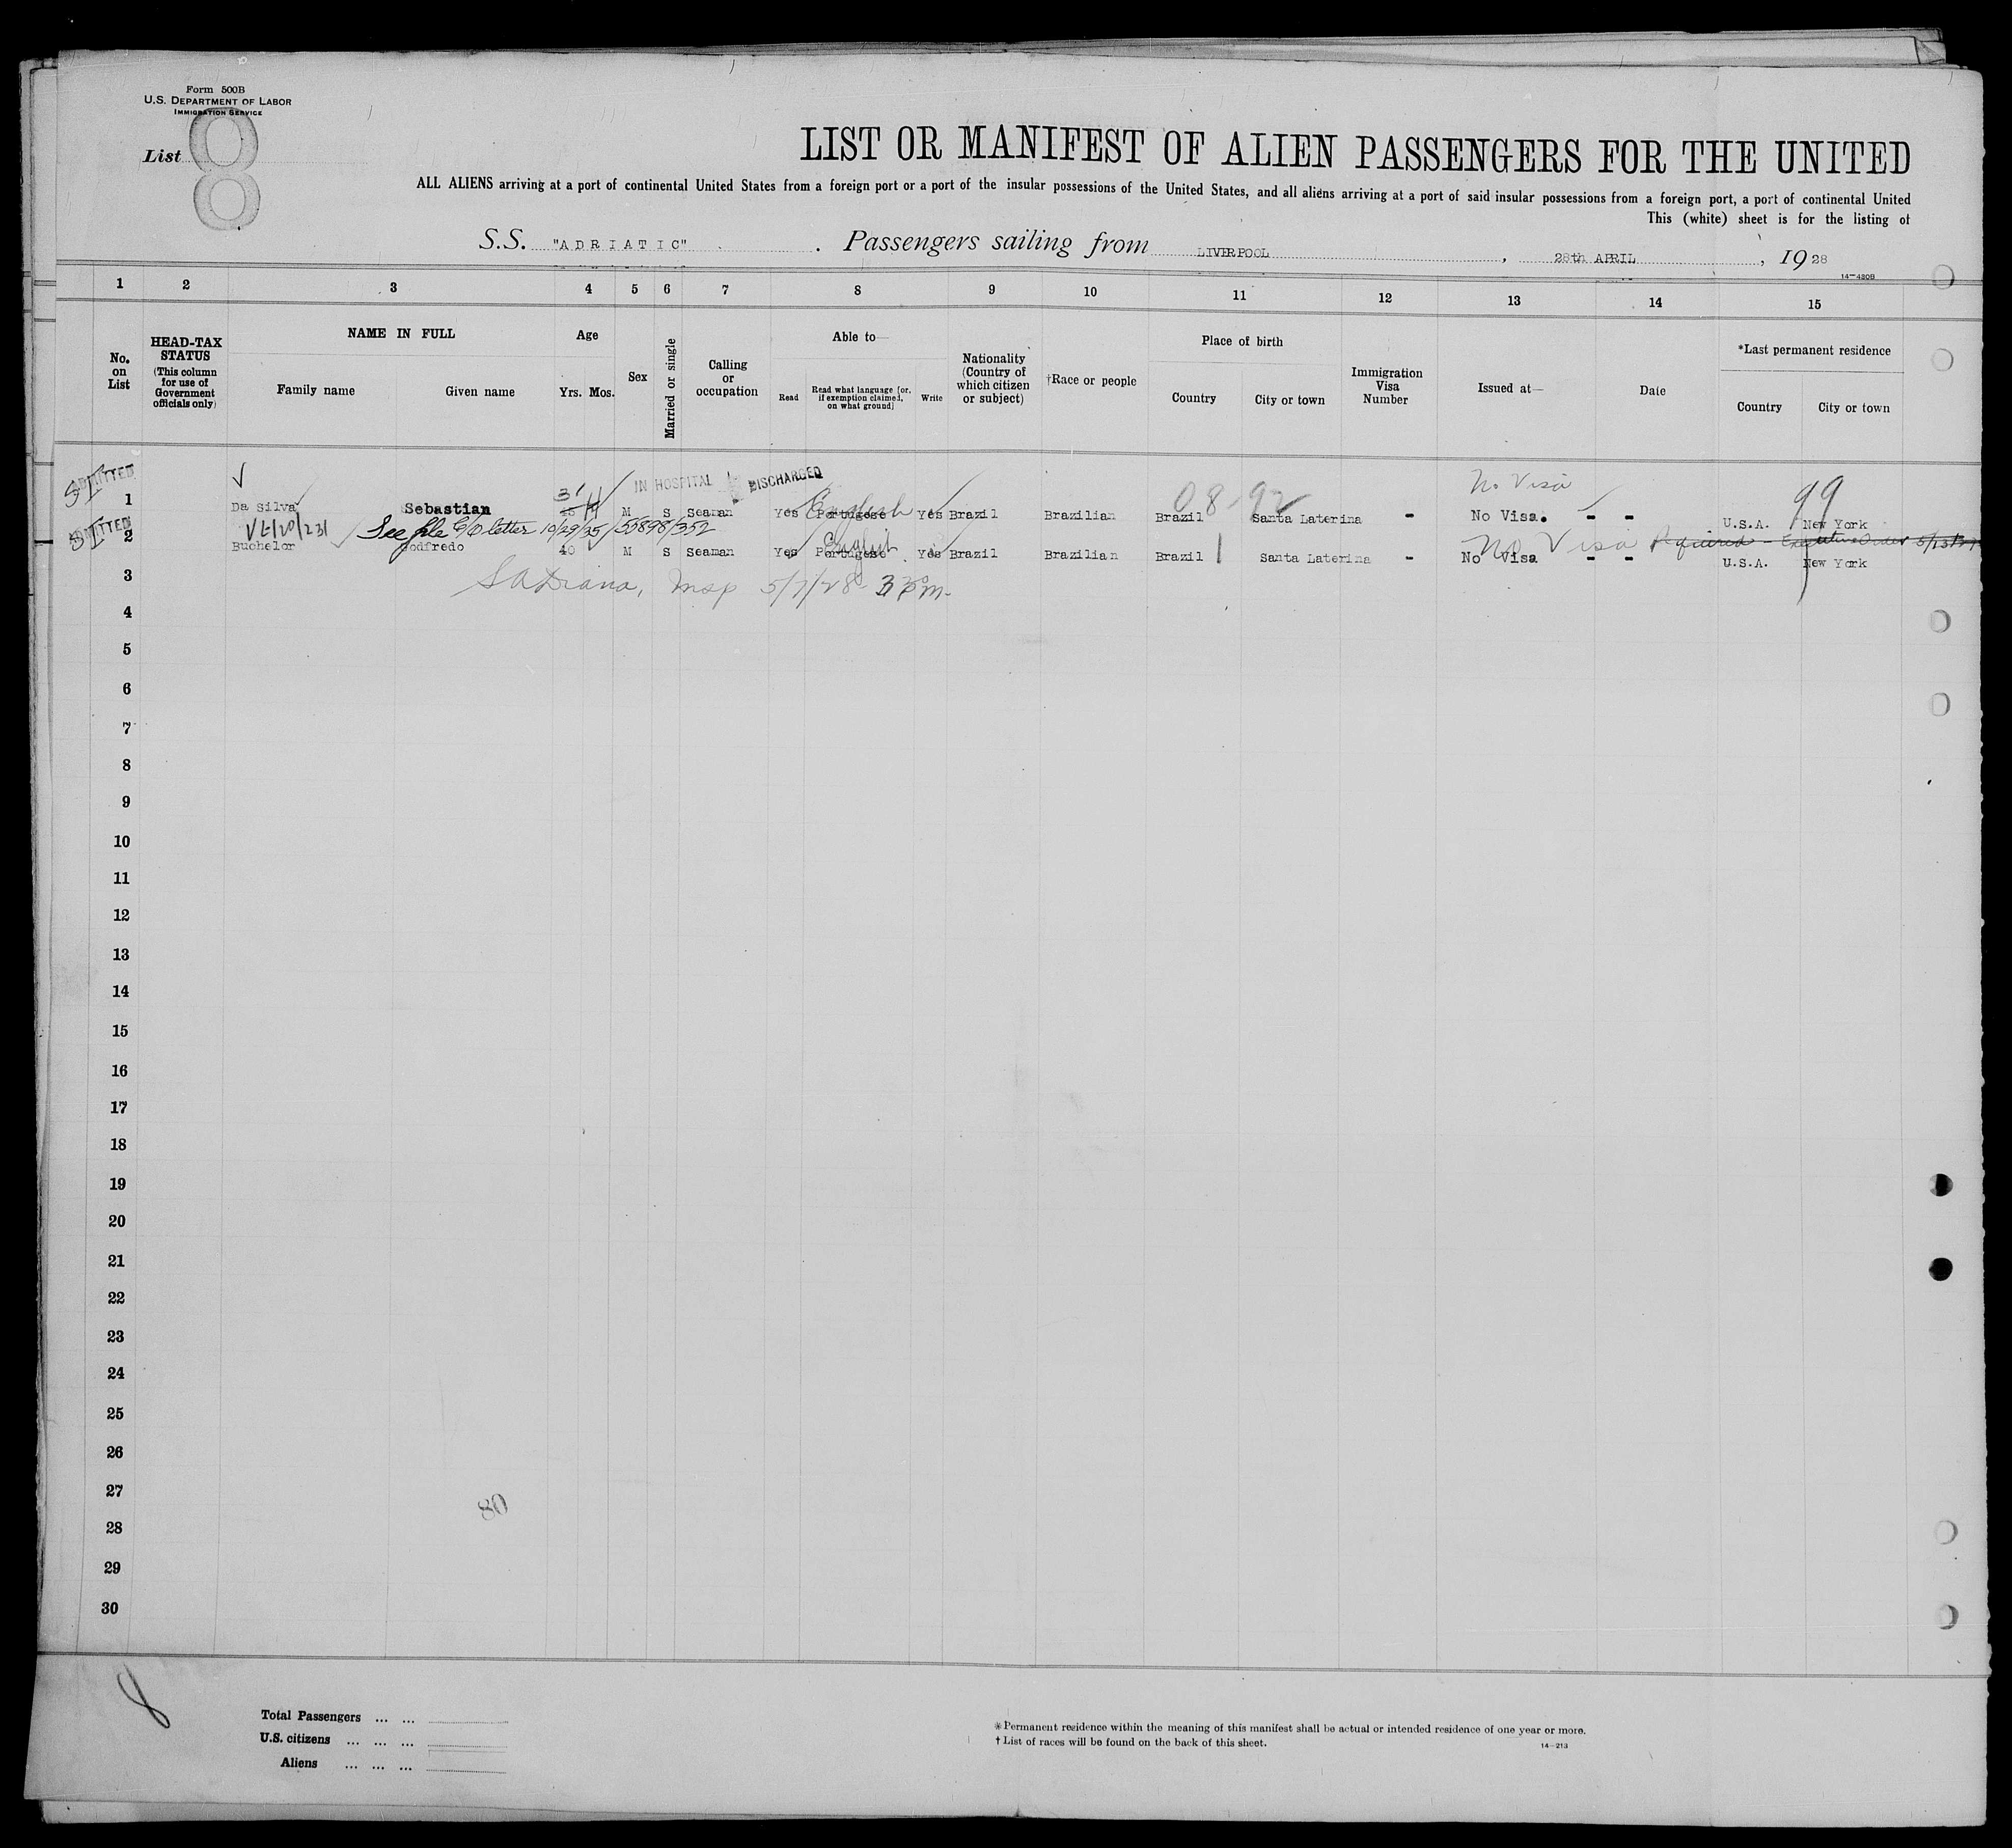 Form 500B
U.S. DEPARTMENT OF LABOR
IMMIGRATION SERVICE
List 8
LIST OR MANIFEST OF ALIEN PASSENGERS FOR THE UNITED
ALL ALIENS arriving at a port of continental United States from a foreign port or a port of the insular possessions of the United States, and all aliens arriving at a port of said insular possessions from a foreign port, a port of continental United
This (white) sheet is for the listing of
S.S. "ADRIATIC" . Passengers sailing from LIVERPOOL , 28th APRIL , 1928
14—430B
1 2 3 4 5 6 7 8 9 10 11 12 13 14 15
No. on List
HEAD-TAX STATUS (This column for use of Government officials only)
NAME IN FULL
Family name Given name
Age
Yrs. Mos.
Sex
Married or single
Calling or occupation
Able to—
Read Read what language [or, if exemption claimed, on what ground] Write
Nationality (Country of which citizen or subject)
†Race or people
Place of birth
Country City or town
Immigration Visa Number
Issued at—
Date
*Last permanent residence
Country City or town
ADMITTED IN HOSPITAL DISCHARGED No Visa
31 English 08-92 99
1 Da Silva Sebastian M S Seaman Yes Portugese Yes Brazil Brazilian Brazil Santa Laterina - No Visa. - - U.S.A. New York
ADMITTED See file C/O letter 10/29/35/55898/352
English No Visa Required - Executive Order
2 Buchelor Godfredo 40 M S Seaman Yes Portugese Yes Brazil Brazilian Brazil Santa Laterina - No Visa - - U.S.A. New York
3
5/7/28
4
5
6
7
8
9
10
11
12
13
14
15
16
17
18
19
20
21
22
23
24
25
26
27
80
28
29
30
8
Total Passengers ... ...
U.S. citizens ... ... ...
Aliens ... ... ...
* Permanent residence within the meaning of this manifest shall be actual or intended residence of one year or more.
† List of races will be found on the back of this sheet.
14—213